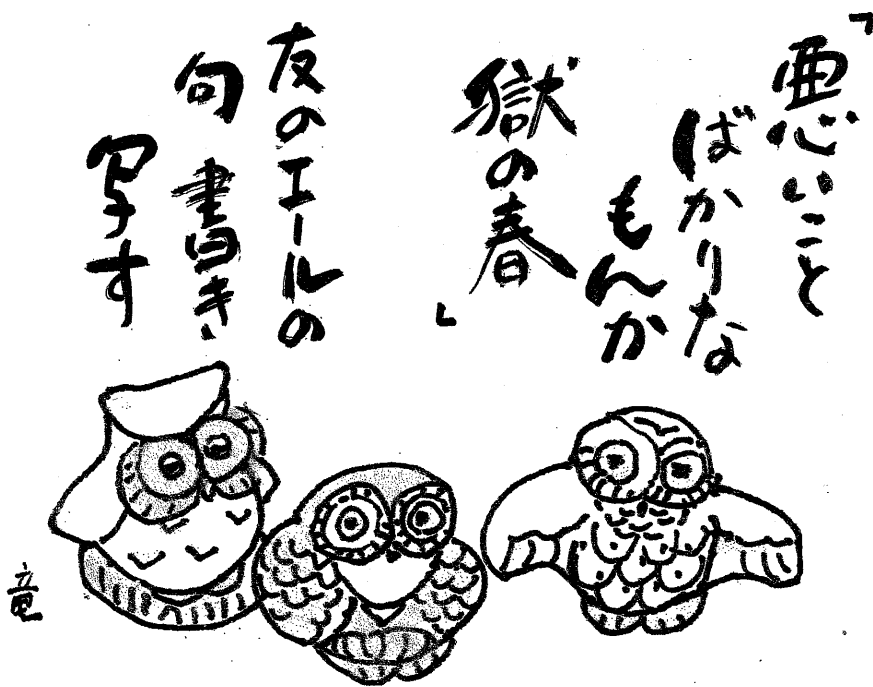 「悪いこと
ばかりな
もんか
獄の春
」
友のエールの
句書き
写す
竜